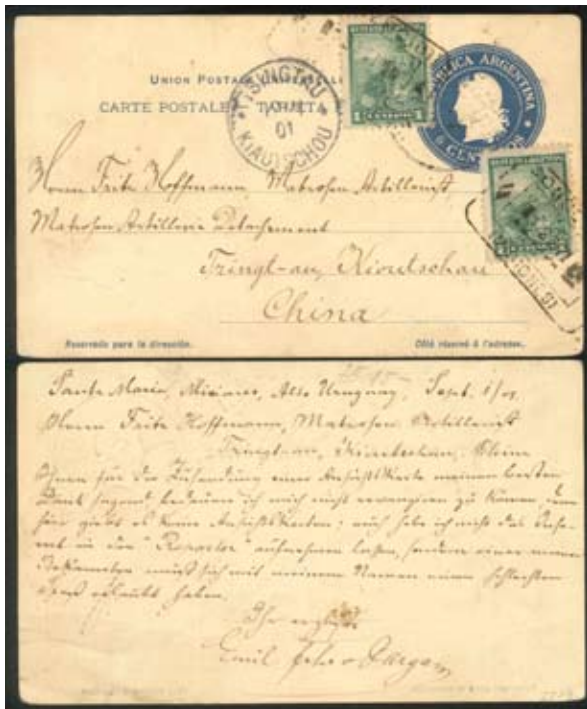 UNION POSTALE UNIVERSELLE
CARTE POSTALE TARJETA
REPUBLICA ARGENTINA
6 CENTAVOS
TSINGTAU
01
KIAUTSCHOU
1
Herrn Fritz Hoffmann, Matrosen Artillerist
Matrosen Artillerie Detachement
Tsingt-au, Kioutschau
China
Reservado para la dirección.
Côté réservé à l'adresse.
Santa Maria, Misiones, Alto Uruguay, Sept. 1/01
Herrn Fritz Hoffmann, Matrosen Artillerist
Tsingt-au, Kioutschau, China
Ihnen für die Zusendung einer Ansichtskarte meinen besten
Dank sagend bedaure ich mich nicht revangiren zu können, denn
hier giebt es keine Ansichtskarten; auch habe ich nicht das
in den aufnehmen lassen, sondern einer meiner
Bekannten muß sich mit meinem Namen einen schlechten
Spaß erlaubt haben.
Ihr
Emil